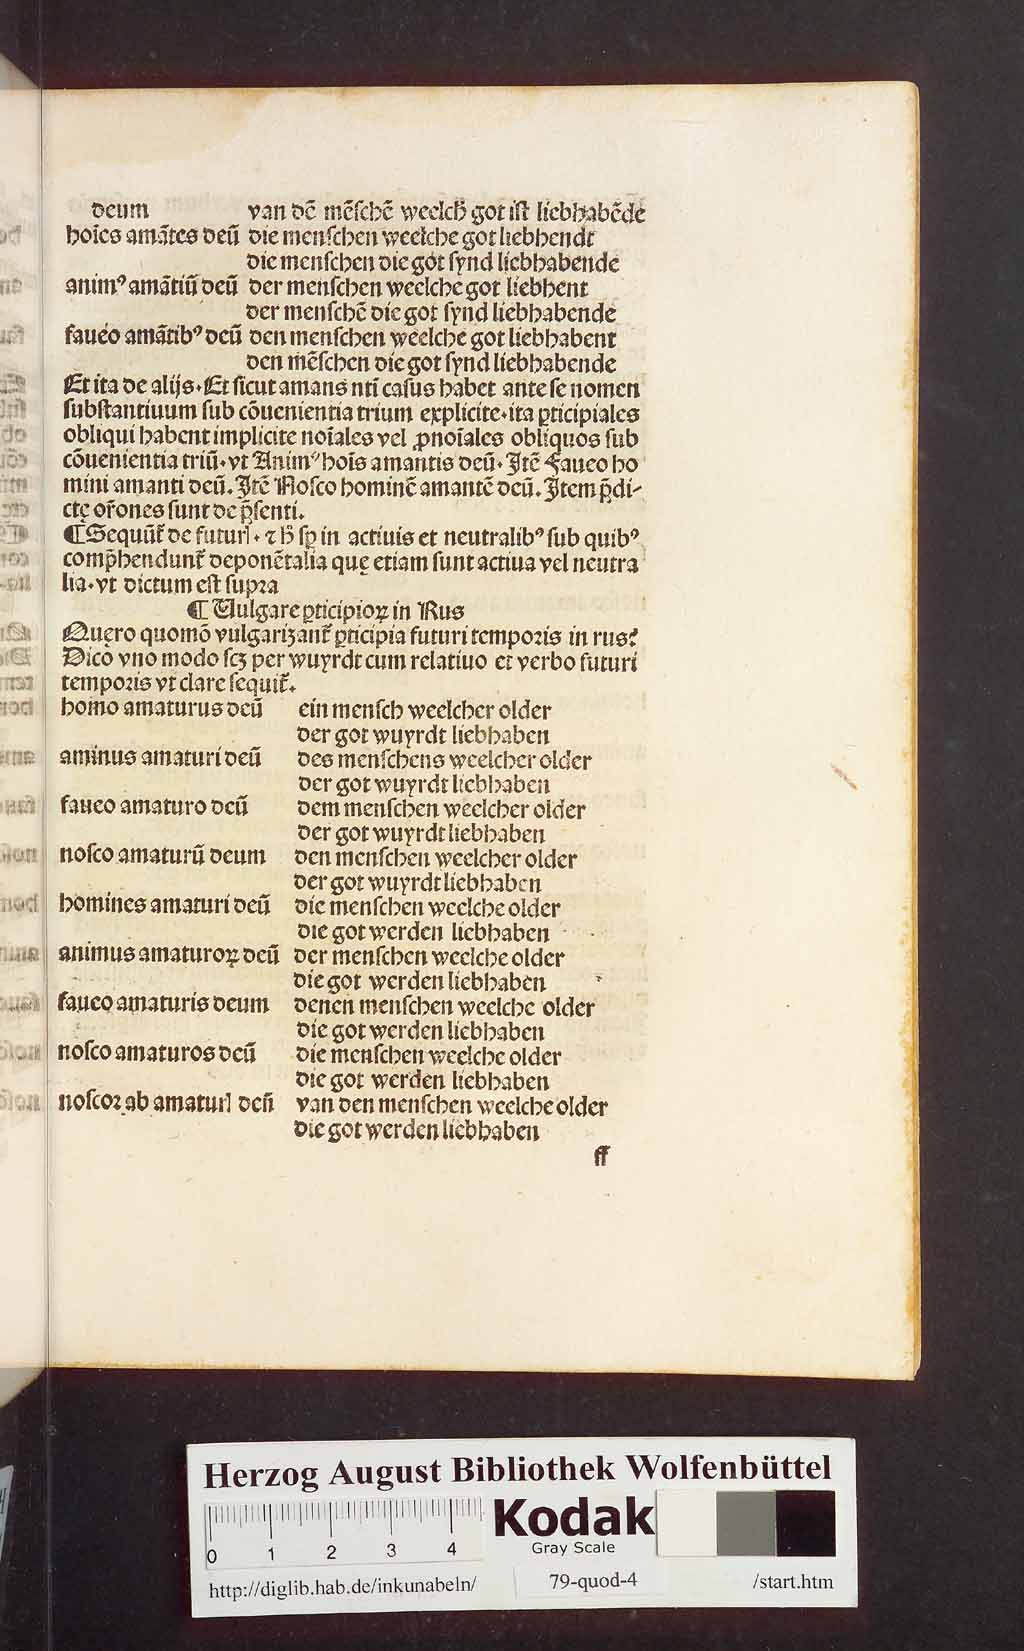 deum van dē mēſchē weelch̄ got iſt liebhabēde
hoīes amātes deū die menſchen weelche got liebhendt
die menſchen die got ſynd liebhabende
animꝰ amātiū deū der menſchen weelche got liebhent
der menſchē die got ſynd liebhabende
faueo amātibꝰ deū den menſchen weelche got liebhabent
den mēſchen die got ſynd liebhabende
Et ita de alijs. Et ſicut amans nti caſus habet ante ſe nomen
ſubſtantiuum ſub cōuenientia trium explicite. ita ꝑticipiales
obliqui habent implicite noīales vel ꝓnoīales obliquos ſub
cōuenientia triū. vt Animꝰ hoīs amantis deū. Itē Faueo ho
mini amanti deū. Itē Noſco hominē amantē deū. Item p̄di-
ctę or̄ones ſunt de p̄ſenti.
¶ Sequūt̄ de futurꝭ. ⁊ h̄ ſꝑ in actiuis et neutralibꝰ ſub quibꝰ
comp̄hendunt̄ deponētalia quę etiam ſunt actiua vel neutra
lia. vt dictum eſt ſupra
¶ Uulgare ꝑticipioꝝ in Rus
Quęro quomō vulgarizant̄ ꝑticipia futuri temporis in rus?
Dico vno modo ſcꝫ per wuyrdt cum relatiuo et verbo futuri
temporis vt clare ſequit̄.
homo amaturus deū ein menſch weelcher older
der got wuyrdt liebhaben
aminus amaturi deū des menſchens weelcher older
der got wuyrdt liebhaben
faueo amaturo deū dem menſchen weelcher older
der got wuyrdt liebhaben
noſco amaturū deum den menſchen weelcher older
der got wuyrdt liebhaben
homines amaturi deū die menſchen weelche older
die got werden liebhaben
animus amaturoꝝ deū der menſchen weelche older
die got werden liebhaben
faueo amaturis deum denen menſchen weelche older
die got werden liebhaben
noſco amaturos deū die menſchen weelche older
die got werden liebhaben
noſcor ab amaturꝭ deū van den menſchen weelche older
die got werden liebhaben
ff
Herzog August Bibliothek Wolfenbüttel
0 1 2 3 4
Kodak
Gray Scale
http://diglib.hab.de/inkunabeln/ 79-quod-4 /start.htm